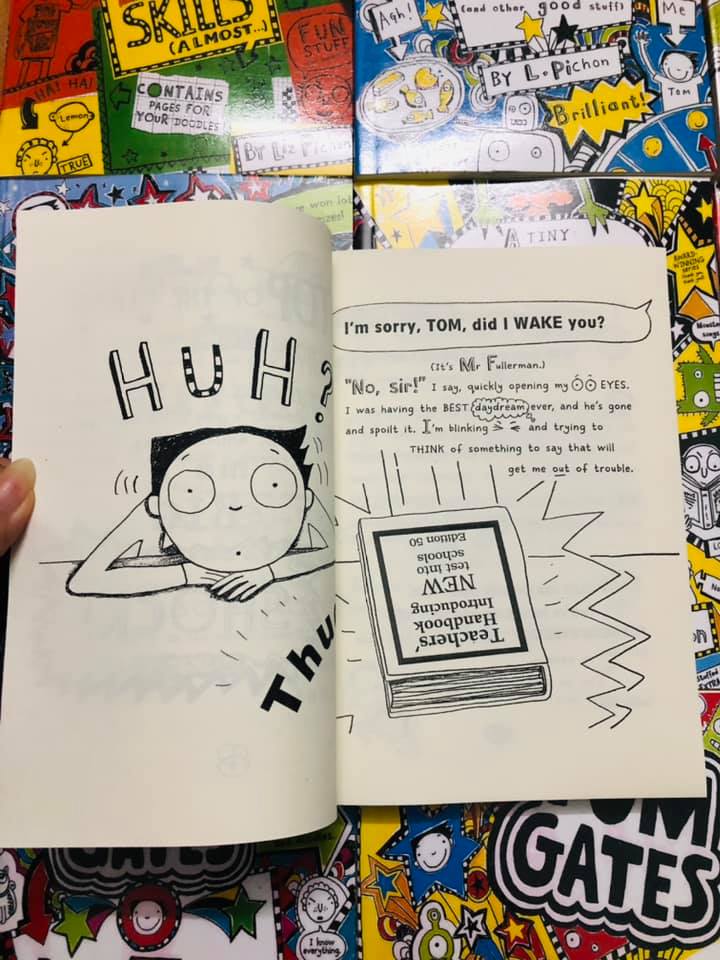 SKILLS
(ALMOST...)
FUN
STUFF
HA! HA!
Lemon
TRUE
CONTAINS
PAGES FOR
YOUR DOODLES
BY Liz Pichon
Agh!
(and other good stuff)
Me
BY L. Pichon
Brilliant!
TOM
won lot
A TINY
AWARD-
WINNING
series
HUH?
Thu
I'm sorry, TOM, did I WAKE you?
(It's Mr Fullerman.)
"No, sir!" I say, quickly opening my EYES.
I was having the BEST daydream ever, and he's gone
and spoilt it. I'm blinking and trying to
THINK of something to say that will
get me out of trouble.
Teachers'
Handbook
Introducing
NEW
test into
schools
Edition 50
GATES
I know
everything.
TOM
GATES